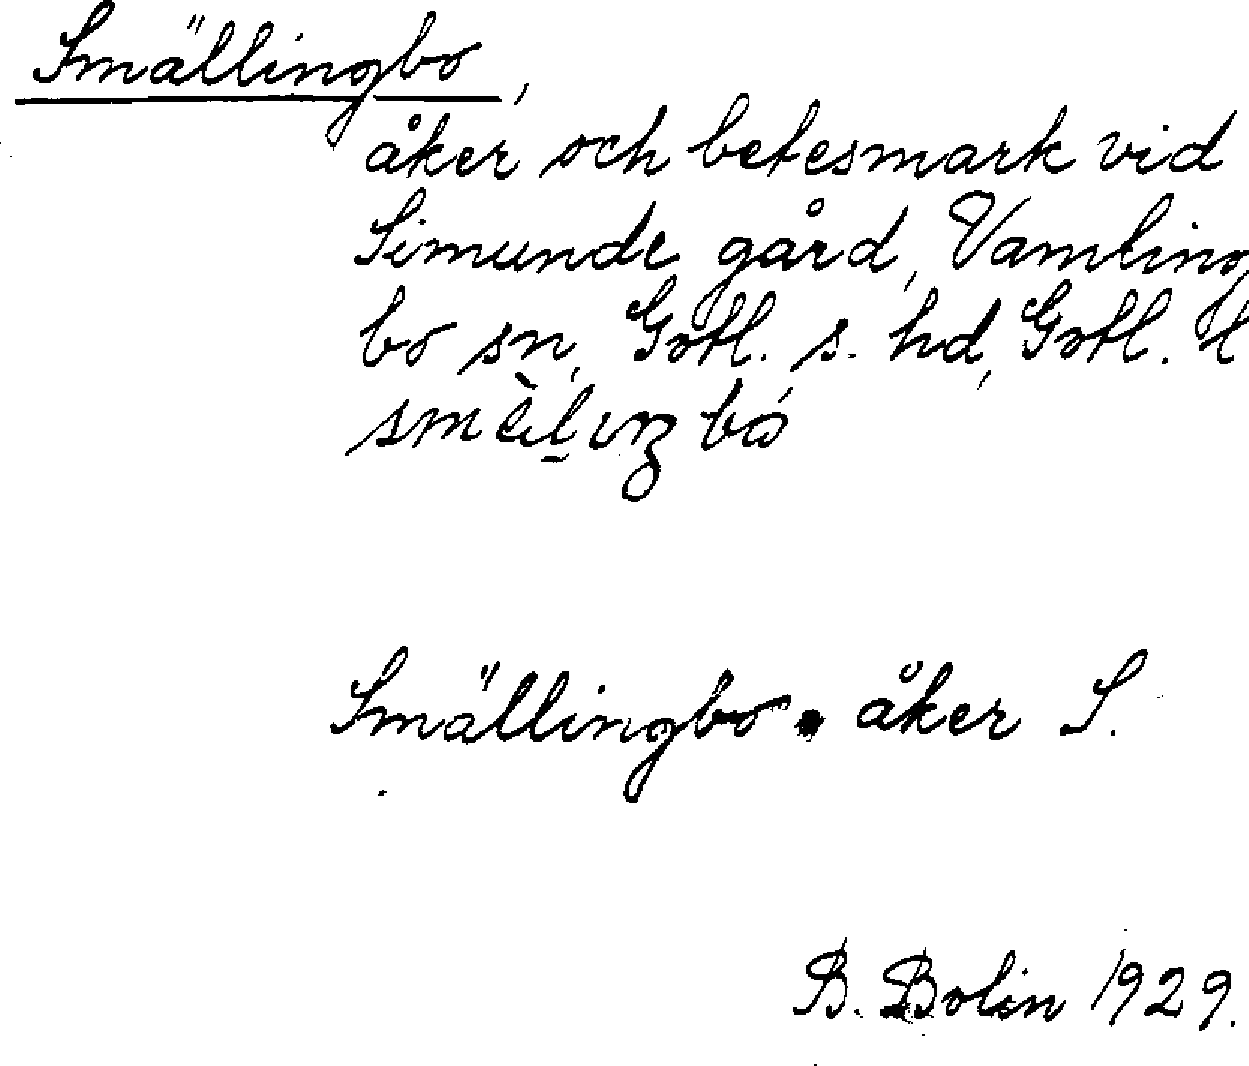 Smällingbo,
åker och betesmark vid
Simunde gård, Vamling
bo sn, Gotl. s. hd, Gotl. l
Smällingbo. åker S.
B. Bolin 1929.